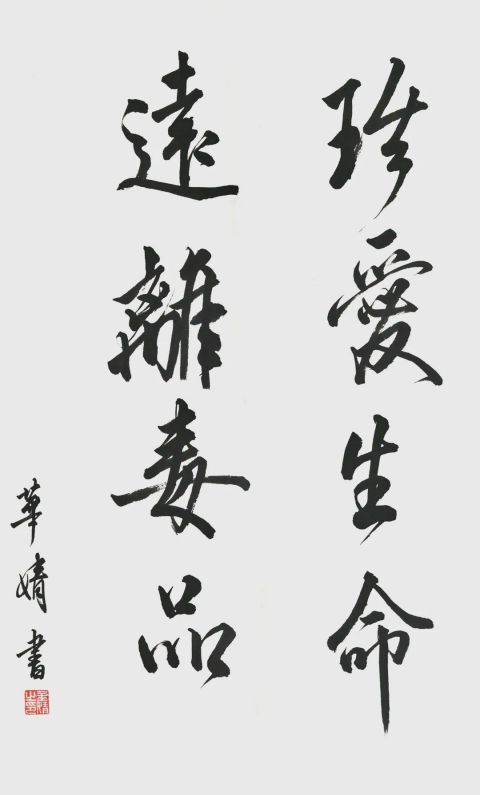 珎愛生命
遠離毒品
華婧書